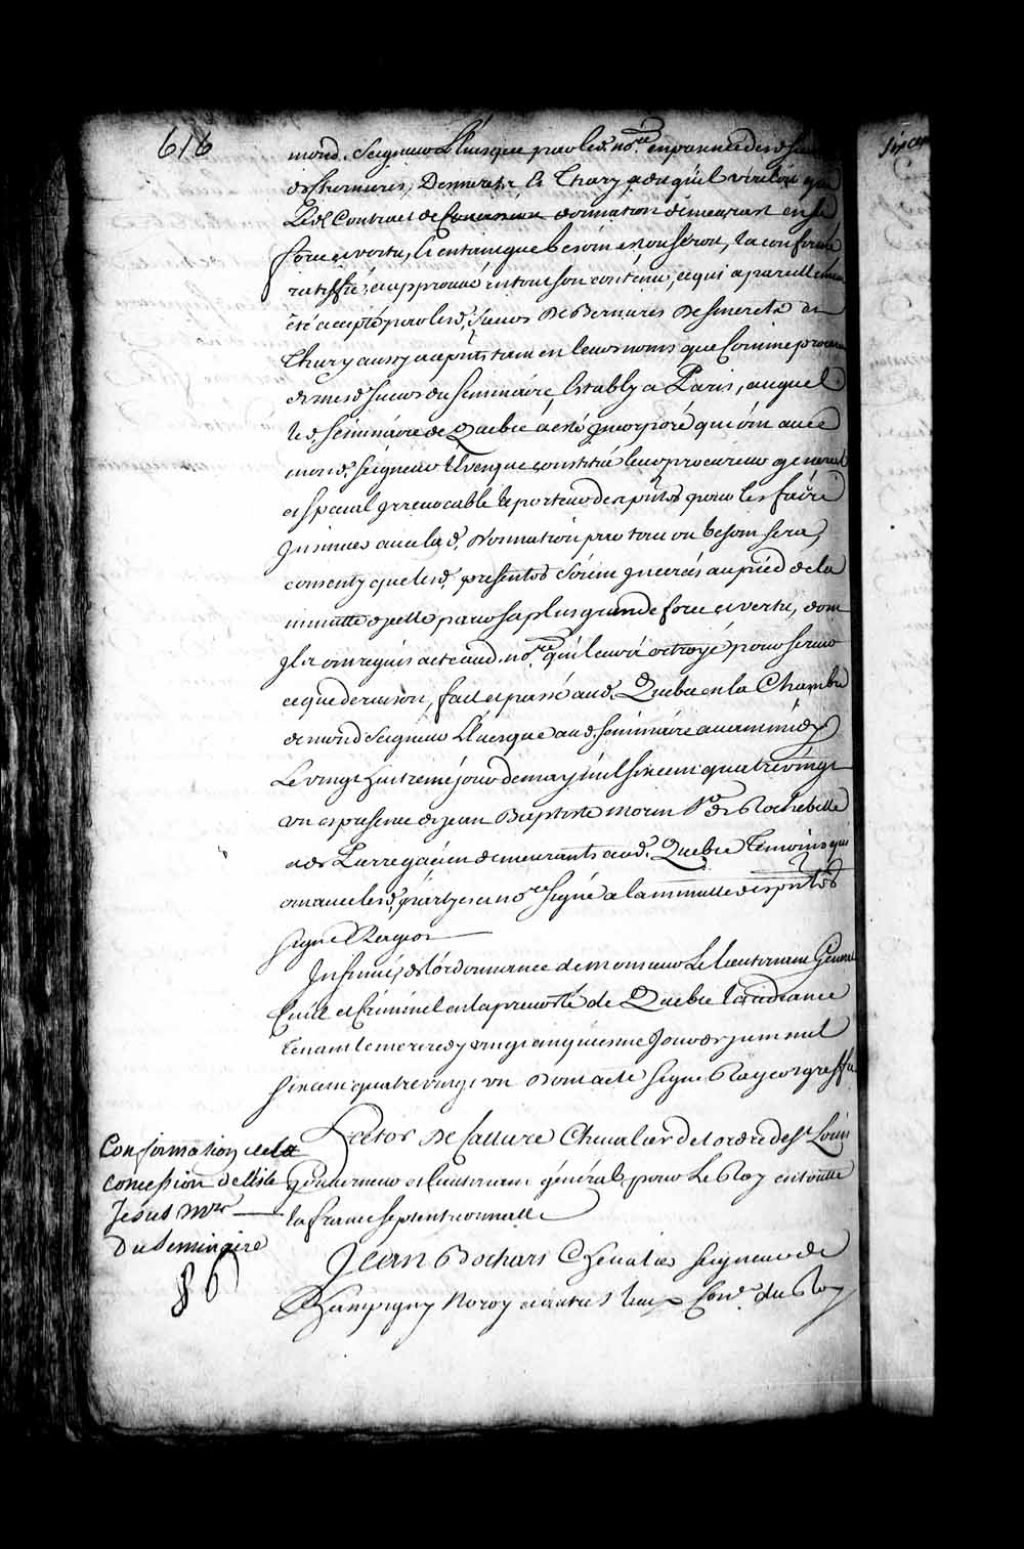 616
mond. Seigneur l'Evesque par led. no.re en presence desd. Sieurs
de Bernieres, Desmeretz, et Thury a dit qu'il vouloit que
Led. Contract de donnation demeurast en sa
force et vertu, et en tant que besoin est ou seroit, la confirmé
ratiffié, et approuvé en tout son contenu, ce qui a pareillement
été accepté par lesd. Sieurs De Bernieres Desmeretz de
Thury aussy a ce pñts tant en leurs noms que Comme procureurs
de mesd. Sieurs du Seminaire Estably a Paris, auquel
led. Seminaire de Quebec a esté Incorporé qui ont avec
mond. Seigneur l'Evesque constitué leur procureur general
et special Irrevocable le porteur des pñtes pour les faire
Insinuer avec lad. donnation par tout ou besoin sera,
consenty que lesd. presentes soient Inserés au pied de la
minutte d'jcelle pour sa plus grande force et vertu, dont
Ils ont requis acte aud. no.re qui leur a octroyé pour servir
ce que de raison, fait et passé aud. Quebec en la Chambre
de mond. Seigneur l'Evesque aud. Seminaire avant midy
Le vingt huitieme jour de may mil six cent quatre vingt
un es presence de Jean Baptiste Morin Sr. de Rochebelle
et de Larregaüen demeurants aud. Quebec Temoins qui
ont avec lesd. partyes et no.re signé a la minutte des pñtes
signé Rageot
Insinué, de l'ordonnance de monsieur Le Lieutenant General
Civil et Criminel en la prevosté de Quebec l'audiance
tenant le mercredy vingt cinquiesme Jour de juin mil
six cent quatre vingt un dont acte signé Rageot greffier
Confirmation de la
concession de l'isle
Jesus Mrs
Du Seminaire
86
Hector De Calliere Chevalier de l'ordre de St. Louis
Gouverneur et Lieutenant général pour Le Roy en toutte
la france septentrionnalle
Jean Bochart Chevalier Seigneur de
Champigny Noroy et autres lieux Conr. du Roy